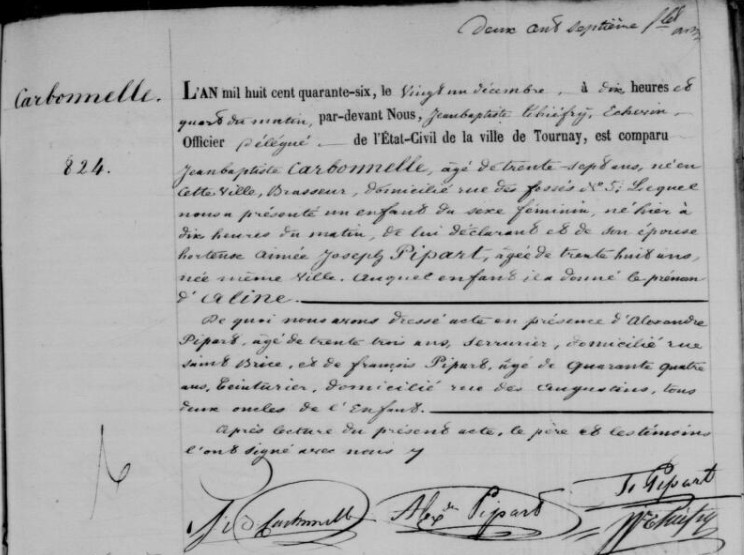 Deux cent septième flet
Carbonnelle.
824.
L'AN mil huit cent quarante-six, le vingt un décembre, à dix heures et
quart du matin, par-devant Nous, Jeanbaptiste Thiéfry, Echevin,
Officier Délégué de l'État-Civil de la ville de Tournay, est comparu
Jeanbaptiste Carbonnelle, âgé de trente-sept ans, né en
cette Ville, Brasseur, domicilié rue des fossés N° 5; Lequel
nous a présenté un enfant du sexe féminin, né hier à
dix heures du matin, de lui déclarant et de son épouse
hortense aimée Joseph Pipart, âgée de trente huit ans,
née même ville. Auquel enfant il a donné le prénom
d'Aline.
De quoi nous avons dressé acte en présence d'Alexandre
Pipart, âgé de trente trois ans, serrurier, domicilié rue
saint Brice, et de françois Pipart, âgé de quarante quatre
ans, teinturier, domicilié rue des augustins, tous
deux oncles de l'Enfant.
Après lecture du présent acte, le père et les témoins
l'ont signé avec nous
J. B Carbonnelle Alexdre Pipart F. Pipart
Thiéfry